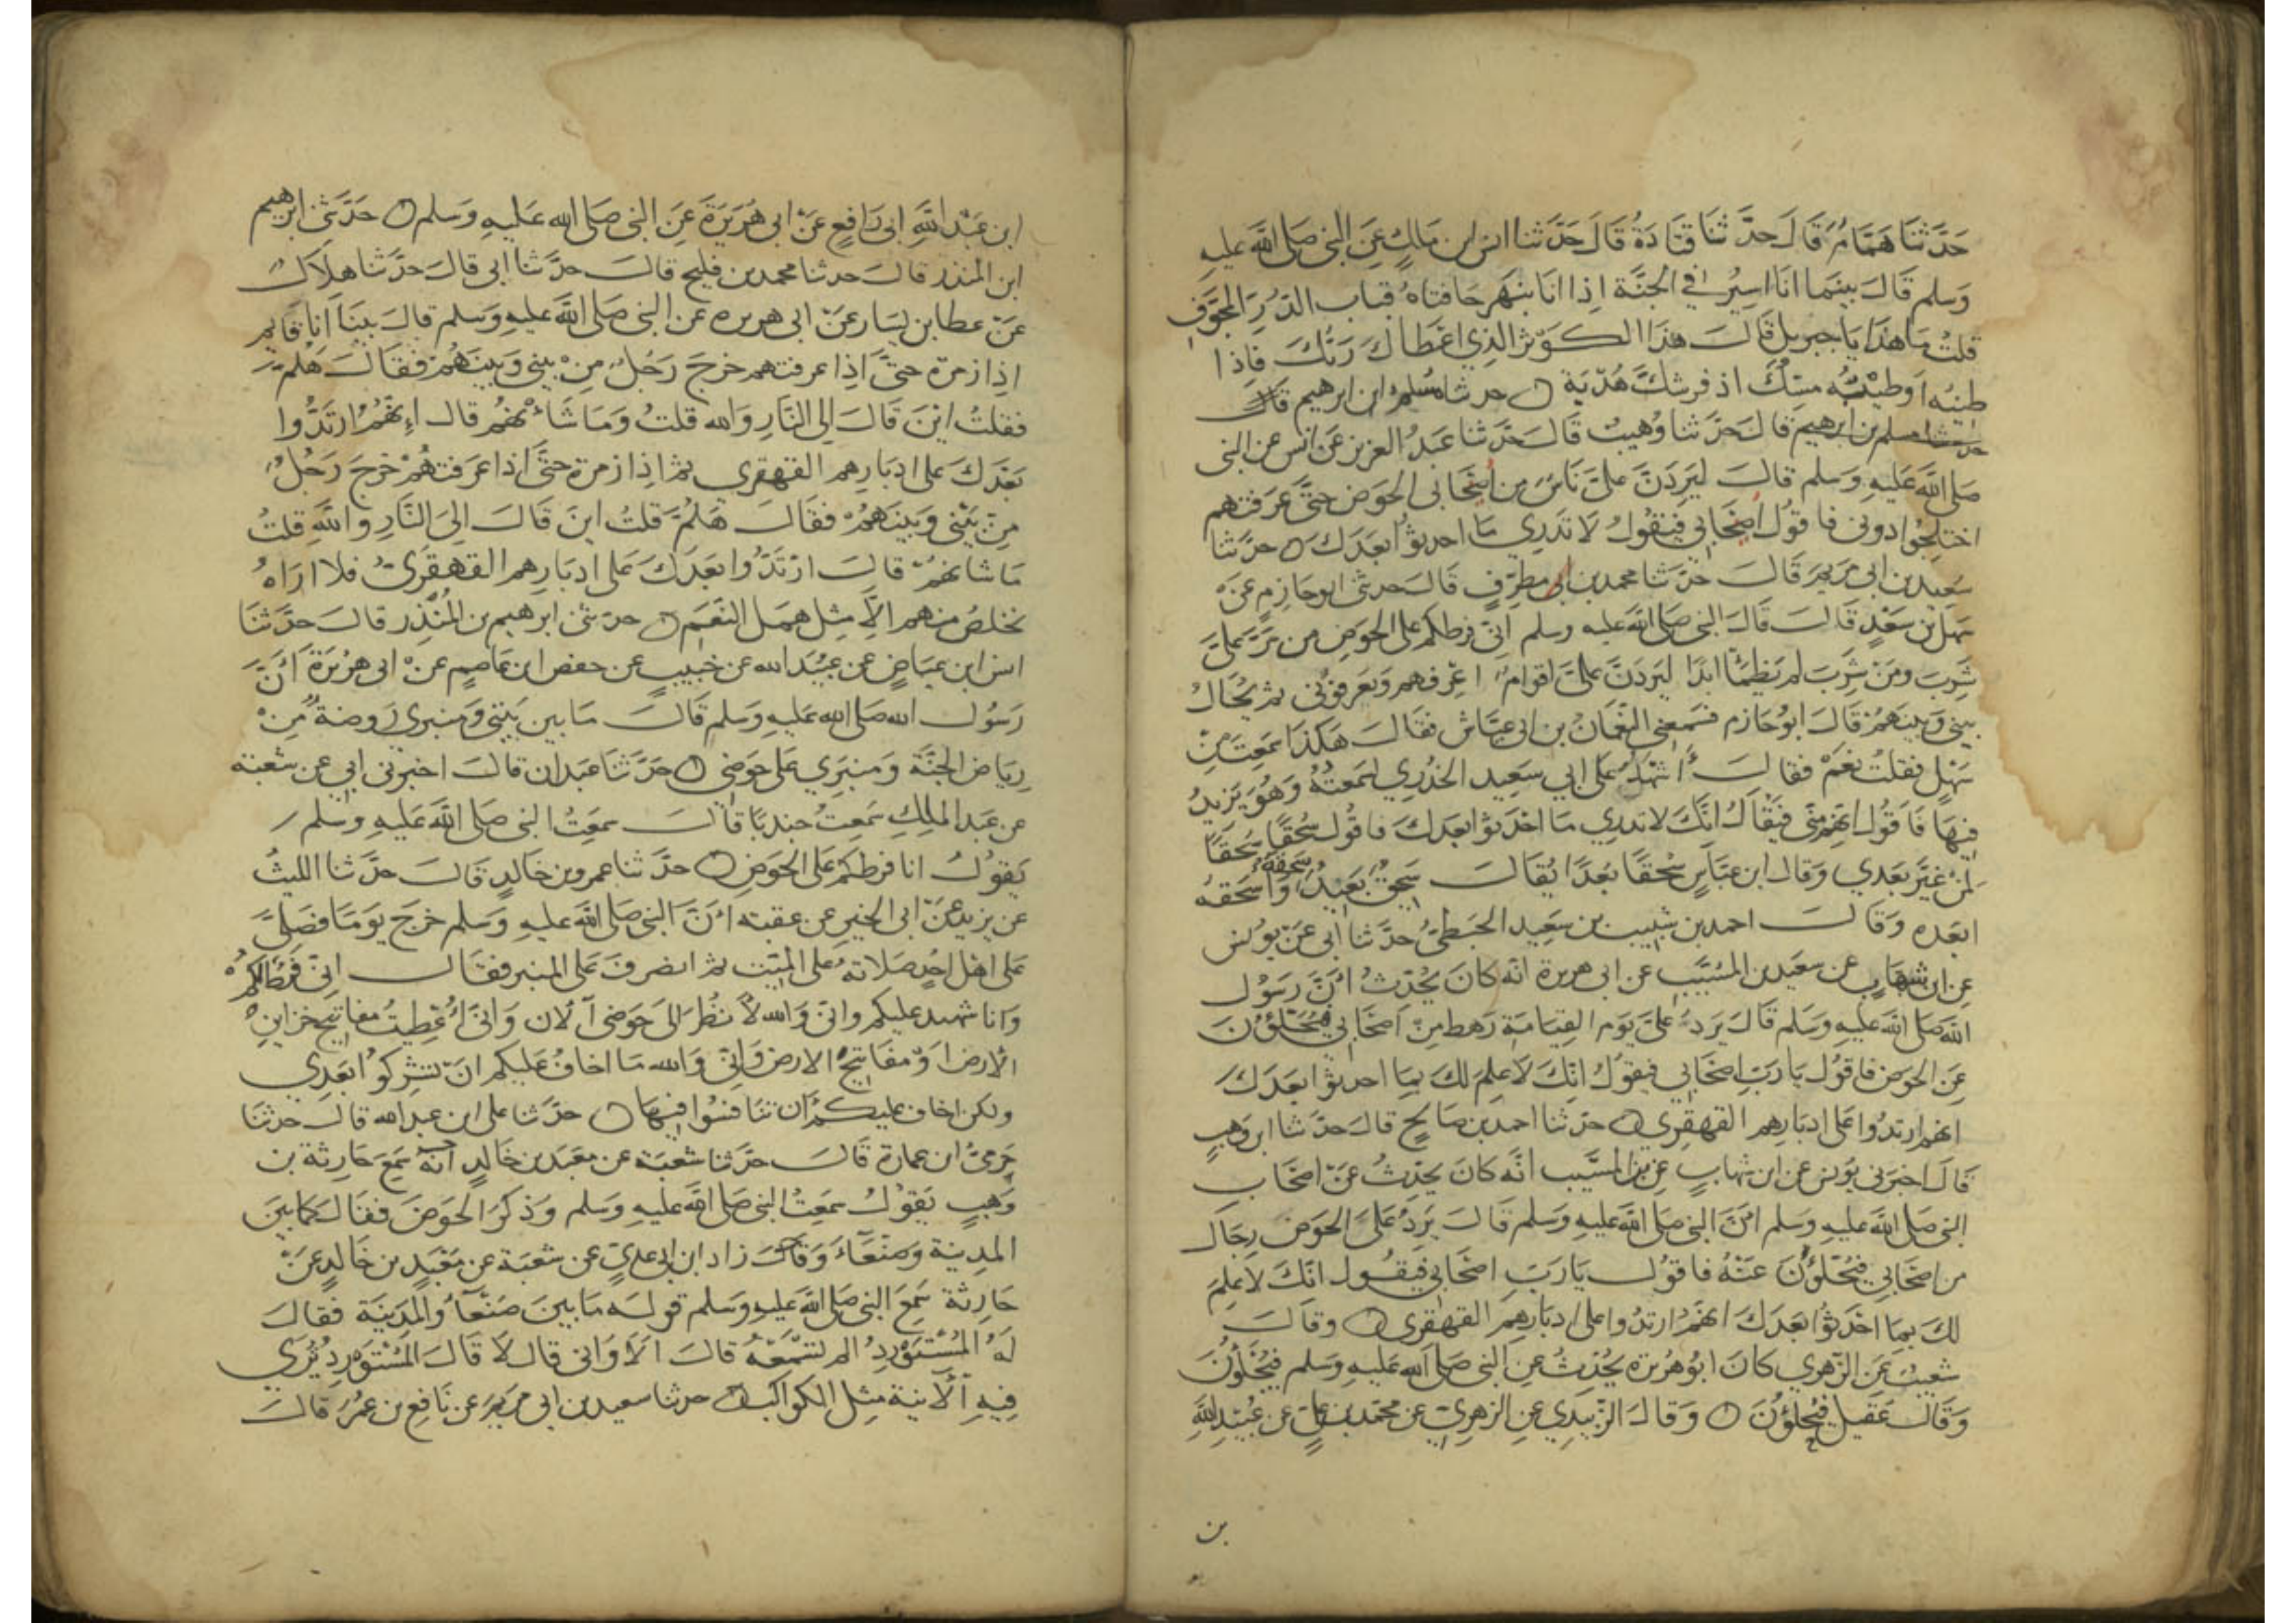 حَدَّثَنَا هَمَّامٌ قَالَ حَدَّثَنَا قَتَادَةُ قَالَ حَدَّثَنَا انس ابن مَالِكٍ عَنِ النبى صَلى اللَّه عليهِ
وَسلم قَالَ بينَما انَا اسِيْرُ فى الجنَّة اِذا انَا بنهَر حَافتاهُ قبابُ الدُّرِّ المجَوَّفِ
قلتُ مَا هَذا يَا جبريل قَالَ هذَا الكَوْثر الذِي اعْطَاكَ رَبُّكَ فَاِذا
طينُه اوطيْبُه مسْكٌ اذفر شكَّ هُدْبَة ○ حدثنا مُسْلم ابن ابرهيم قال
حدثنا مسلم بن ابرهيم قَالَ حَدَّثنا وُهيبٌ قَالَ حَدَّثنا عَبدُ العزيز عَن انس عن النبى
صَلى اللَّه عَليهِ وَسَلم قالَ ليَرِدَنَّ عَلىَّ نَاسٌ من اصْحَابى الحوَض حتَّى عَرَفتهم
اختلجُوا دونى فاقوُل اصْحَابى فيَقولُ لَا تَدرِي مَا احدثوُا بعدَكَ ○ حدثنا
سَعِيد بن ابى مَريمَ قَالَ حَدَّثنا محمد بن ابى مطرِّفٍ قَالَ حدثنى ابو حَازِمٍ عَنْ
سَهل بن سَعْدٍ قَالَ قَالَ النبى صَلى اللَّه عليه وسلم اِنّى فرطكم عَلى الحوَضِ من مَرَّ عَلىَّ
شَرِبَ وَمَنْ شَرِبَ لم يَظمَأ ابدًا ليَرِدَنَّ عَلىَّ اقوامٌ اعْرِفهم وَيَعرفوُنى ثم يُحَالُ
بينى وَبينَهمُ قَالَ ابوُ حَازم فسَمعَنى النعْمَانُ بن ابى عيَّاش فقَالَ هكذا سَمعْتَ مِنْ
سَهْلٍ فقلتُ نعَمْ فقالَ أشْهَدُ عَلى ابى سَعِيد الخدْرِي لسَمعْتُهُ وَهُوَ يَزيدُ
فيهَا فَاقولُ انهم منِّى فيُقالُ اِنَّكَ لا تدرِي مَا احْدَثوا بعدَكَ فاقولُ سُحْقًا سُحْقًا
لمَنْ غيَّرَ بعْدي وَقال ابن عبَّاسٍ سُحْقًا بعُدًا يُقَالُ سَحِيْقٌ بَعِيدٌ سحقَهُ وَاسْحَقهُ
ابعَده وَقَالَ احمد بن شبيب بن سَعِيد الحَبَطىُّ حَدَّثنا ابى عَنْ يوُنس
عن ابن شهَابٍ عن سَعيد بن المُسَيَّب عن ابى هريرة انه كانَ يحُدِّثُ اَنَّ رَسُول
اللَّه صَلى اللَّه عَليه وَسَلم قَالَ يَرِدُ عَلىَّ يَوم القِيامَة رَهط مِنْ اصْحَابى فيُحَلَّؤُنَ
عَنِ الحوَض فاقوُل يا رَبِّ اصْحَابى فيقوُلُ انّكَ لَا علِم لكَ بمِا احدثوا بعَدَكَ
انهم ارتدوُا عَلى ادبارِهم القهقرِى ○ حدثنا احمد بن صَالحٍ قالَ حدَّثنا ابن وَهبٍ
قَالَ اخبرَنى يوُنس عن ابن شهابٍ عن بن المسَّيب انه كانَ يحدِّثُ عَنْ اصْحَابِ
النبى صَلى اللَّه عليهِ وَسَلم انَّ النبى صَلى اللَّه عليهِ وَسَلم قَالَ يَرِدُ عَلىَّ الحوَضَ رِجَال
من اصْحَابى فيُحَلَّؤُنَ عَنْهُ فاقوُل يَا رَبِّ اصْحَابى فيقول انّكَ لا عِلمَ
لكَ بمِا احْدَثوُا بعَدَكَ انهَّمُ ارتدوُا عَلى ادبَارِهِم القهَقرى ○ وقالَ
شعيبٌ عَنِ الزّهرِي كَانَ ابوُ هُرَيْرَة يحُدِّثُ عنِ النبى صَلى اللَّه عَليهِ وَسلم فيُجْلَوْنَ
وَقَالَ عَقيل فيُحلَّؤُنَ ○ وَقَالَ الزّبيَدِي عَنِ الزهرىِّ عن محمَّد بن عَلىٍّ عن عُبَيْدِ اللَّهِ
بن
ابن عَبْد اللَّهِ ابى رَافعٍ عَنْ ابى هُرَيْرَةَ عَنِ النبى صَلى الله عَليهِ وَسَلم ○ حَدَّثَنى ابرهيم
ابن المنذر قَالَ حدثنا محمد بن فليحٍ قالَ حدَّثنا ابى قالَ حَدَّثنا هلَال
عَنْ عطا بن يسَار عَنْ ابى هريره عن النبى صَلى اللَّه عليهِ وَسَلم قالَ بينَا اَنا قَايم
اِذا زمرَة حتىَّ اِذا عرفتهم خرَجَ رَجُلٌ مِنْ بينى وَبينهُم فقَالَ هَلمَّ
فقلتُ ايْنَ قَالَ اِلى النَّارِ وَالله قلتُ وَمَا شَأنهُمُ قال اِنَّهُمُ ارْتَدُّوا
بَعْدَكَ عَلى ادبَارِهِم القهقرِي ثم اِذا زمرَة حتىَّ اذا عَرَفتهُم خرَجَ رَجُلٌ
مِنْ بَيْنى وَبينَهمُ فقالَ هَلمَّ قلتُ اينَ قَالَ الىَ النَّارِ وَاللَّهِ قلتُ
مَا شانهُمُ قالَ ارْتَدُّوا بعَدَكَ عَلى ادبَارِهم القهقَرىٰ فلا ارَاهُ
يخلصُ منهم الاَّ مِثل هَمَل النَّعَم ○ حدثنى ابرهيم بن المُنْذِر قالَ حَدَّثَنَا
انس ابن عيَاضٍ عن عبَيْد الله عن خبيبٍ عن حفص ابن عَاصِمٍ عَنْ ابى هُرَيْرَة اَنَّ
رَسوُلَ الله صَلى الله عَليهِ وَسَلم قَالَ مَا بين بَيْتى وَمنبرى رَوضة مِنْ
رِيَاضِ الجنَّة وَمنبَرِي عَلى حَوَضِى ○ حَدَّثَنَا عَبدان قالَ اخبرَنى ابى عن شعبَه
عن عَبد الملِكِ سَمعْتُ جندبًا قالَ سَمعْتُ النبى صَلى اللَّه عَليهِ وَسَلم
يَقوُلُ انا فرطكم عَلى الحوَضِ ○ حدَّثنا عَمرو بن خَالدٍ قالَ حدَّثنا الليثُ
عن يزيد عَنْ ابى الخير عن عقبه اَنَّ النبى صَلى اللَّه عليهِ وَسَلم خرَجَ يوَمًا فصَلىَّ
عَلى اهْل احُدٍ صَلاته عَلى الميِّت ثم انصَرفَ عَلى المنبر فقَالَ اِنّى فَرَطٌ لكُم
وَانا شهيد عليكم وانّى وَالله لاَنظُر الىَ حَوَضى الآن وَانىِّ اُعْطِيتُ مَفاتيحَ خزاينِ
الأرض اَوْ مفَاتيحُ الارض وَانِّى وَالله مَا اخافُ عَليكم اَنْ تشرِكوُا بَعْدِي
ولكن اخاف عليكم أن تنَافسُوا فيهَا ○ حدَّثنا على ابن عبد الله قالَ حدثنا
حَرَمىُّ ابن عمارة قَالَ حَدَّثنا شعبَة عن معَبد بن خَالدٍ انّهُ سَمِعَ حَارِثة بن
وَهبٍ يَقوُلُ سَمعْتُ النبى صَلى اللَّه عليهِ وَسَلم وَذكَرَ الحوَضَ فقالَ كما بَينَ
المدِينة وَصَنْعَاءَ وَقالَ زاد ابن ابى عدىٍّ عن شعْبَة عن مَعْبَد بن خَالدٍ عَنْ
حَارِثة سَمِعَ النبى صَلى اللَّه عَليهِ وَسَلم قوله مَا بينَ صَنْعَآءَ وَالمدَينَة فقالَ
لَهُ المُسْتَوْرِدُ الم تسْمَعْهُ قالَ الاَوَانى قَال لاَ قَالَ المُسْتَوْرِدُ تُرَى
فِيهِ الآنية مِثل الكواكب ○ حدثنا سعيد بن ابى مريمَ عن نَافعِ بن عُمَرَ قالَ